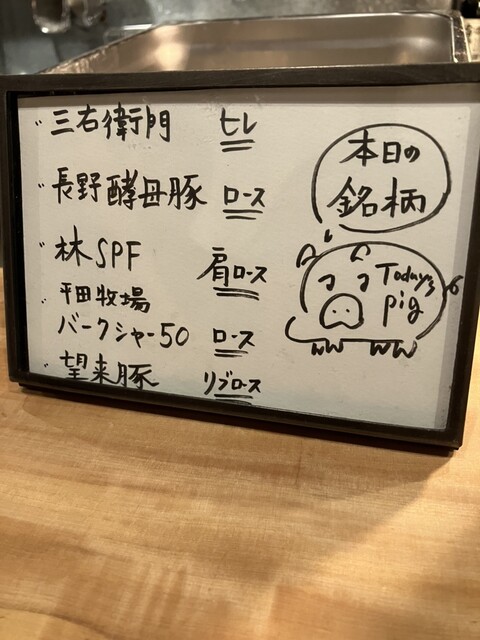 三右衛門 ヒレ
長野酵母豚 ロース
林SPF 肩ロース
平田牧場
バークシャー50 ロース
望来豚 リブロース
本日の
銘柄
Today's
pig